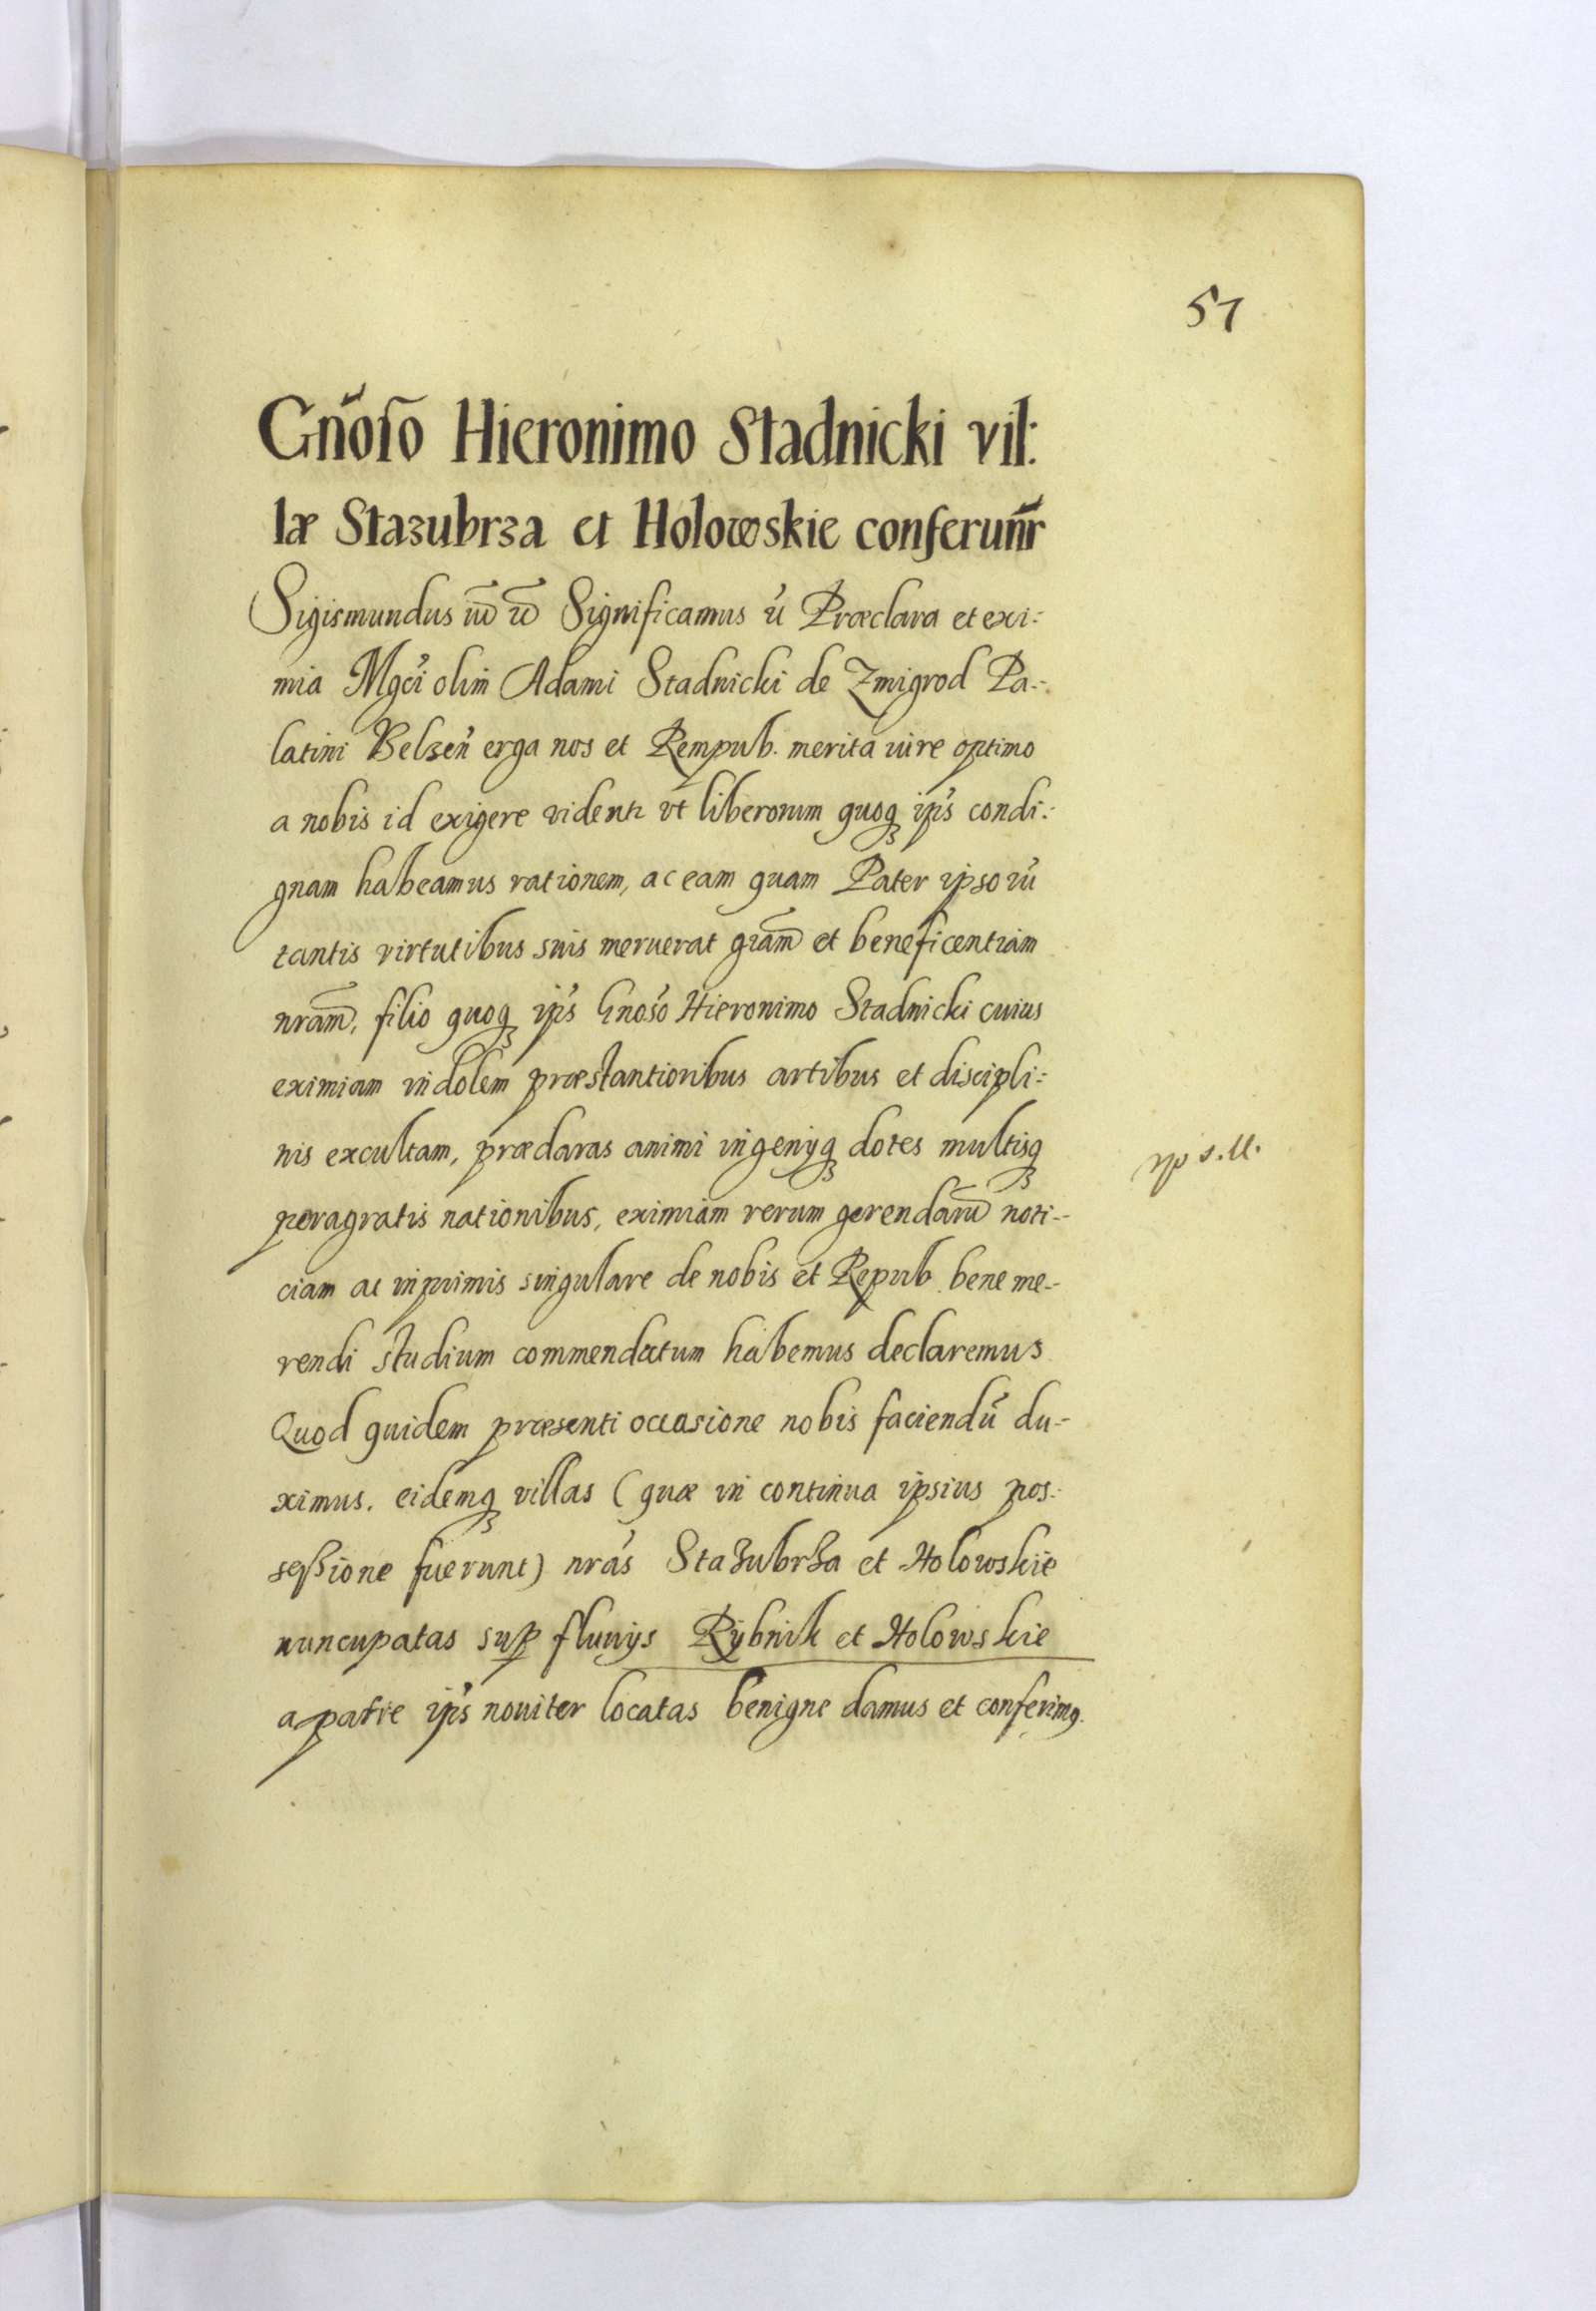 57
Gn̄oso Hieronimo Stadnicki vil:
læ Stazubrza et Holowskie conferunr̃
Sigismundus Significamus Præclara et exi:
mia Mgci olim Adami Stadnicki de Zmigrod Pa-
latini Belzeñ erga nos et Rempub. merita iure optimo
a nobis id exigere vident̃ vt liberorum quoq3 ip̃s condi:
gnam habeamus rationem, ac eam quam Pater ipsorũ
tantis virtutibus suis meruerat grãm et beneficentiam
nr̃am, filio quoq3 ip̃s Gnoso Hieronimo Stadnicki cuius
eximiam indolem præstantioribus artibus et discipli=
nis excultam, præclaras animi ingenijq3 dotes multisq3
peragratis nationibus, eximiam rerum gerendarũ noti-
ciam ac inprimis singulare de nobis et Repub. bene me-
rendi studium commendatum habemus declaremus
Quod quidem præsenti occasione nobis faciendũ du-
ximus. eidemq3 villas (quæ in continua ipsius pos-
seßione fuerunt) nr̃as Stazubrza et Holowskie
nuncupatas sup fluuijs Rybnik et Holowskie
a patre ip̃s nouiter locatas benigne damus et conferimq.